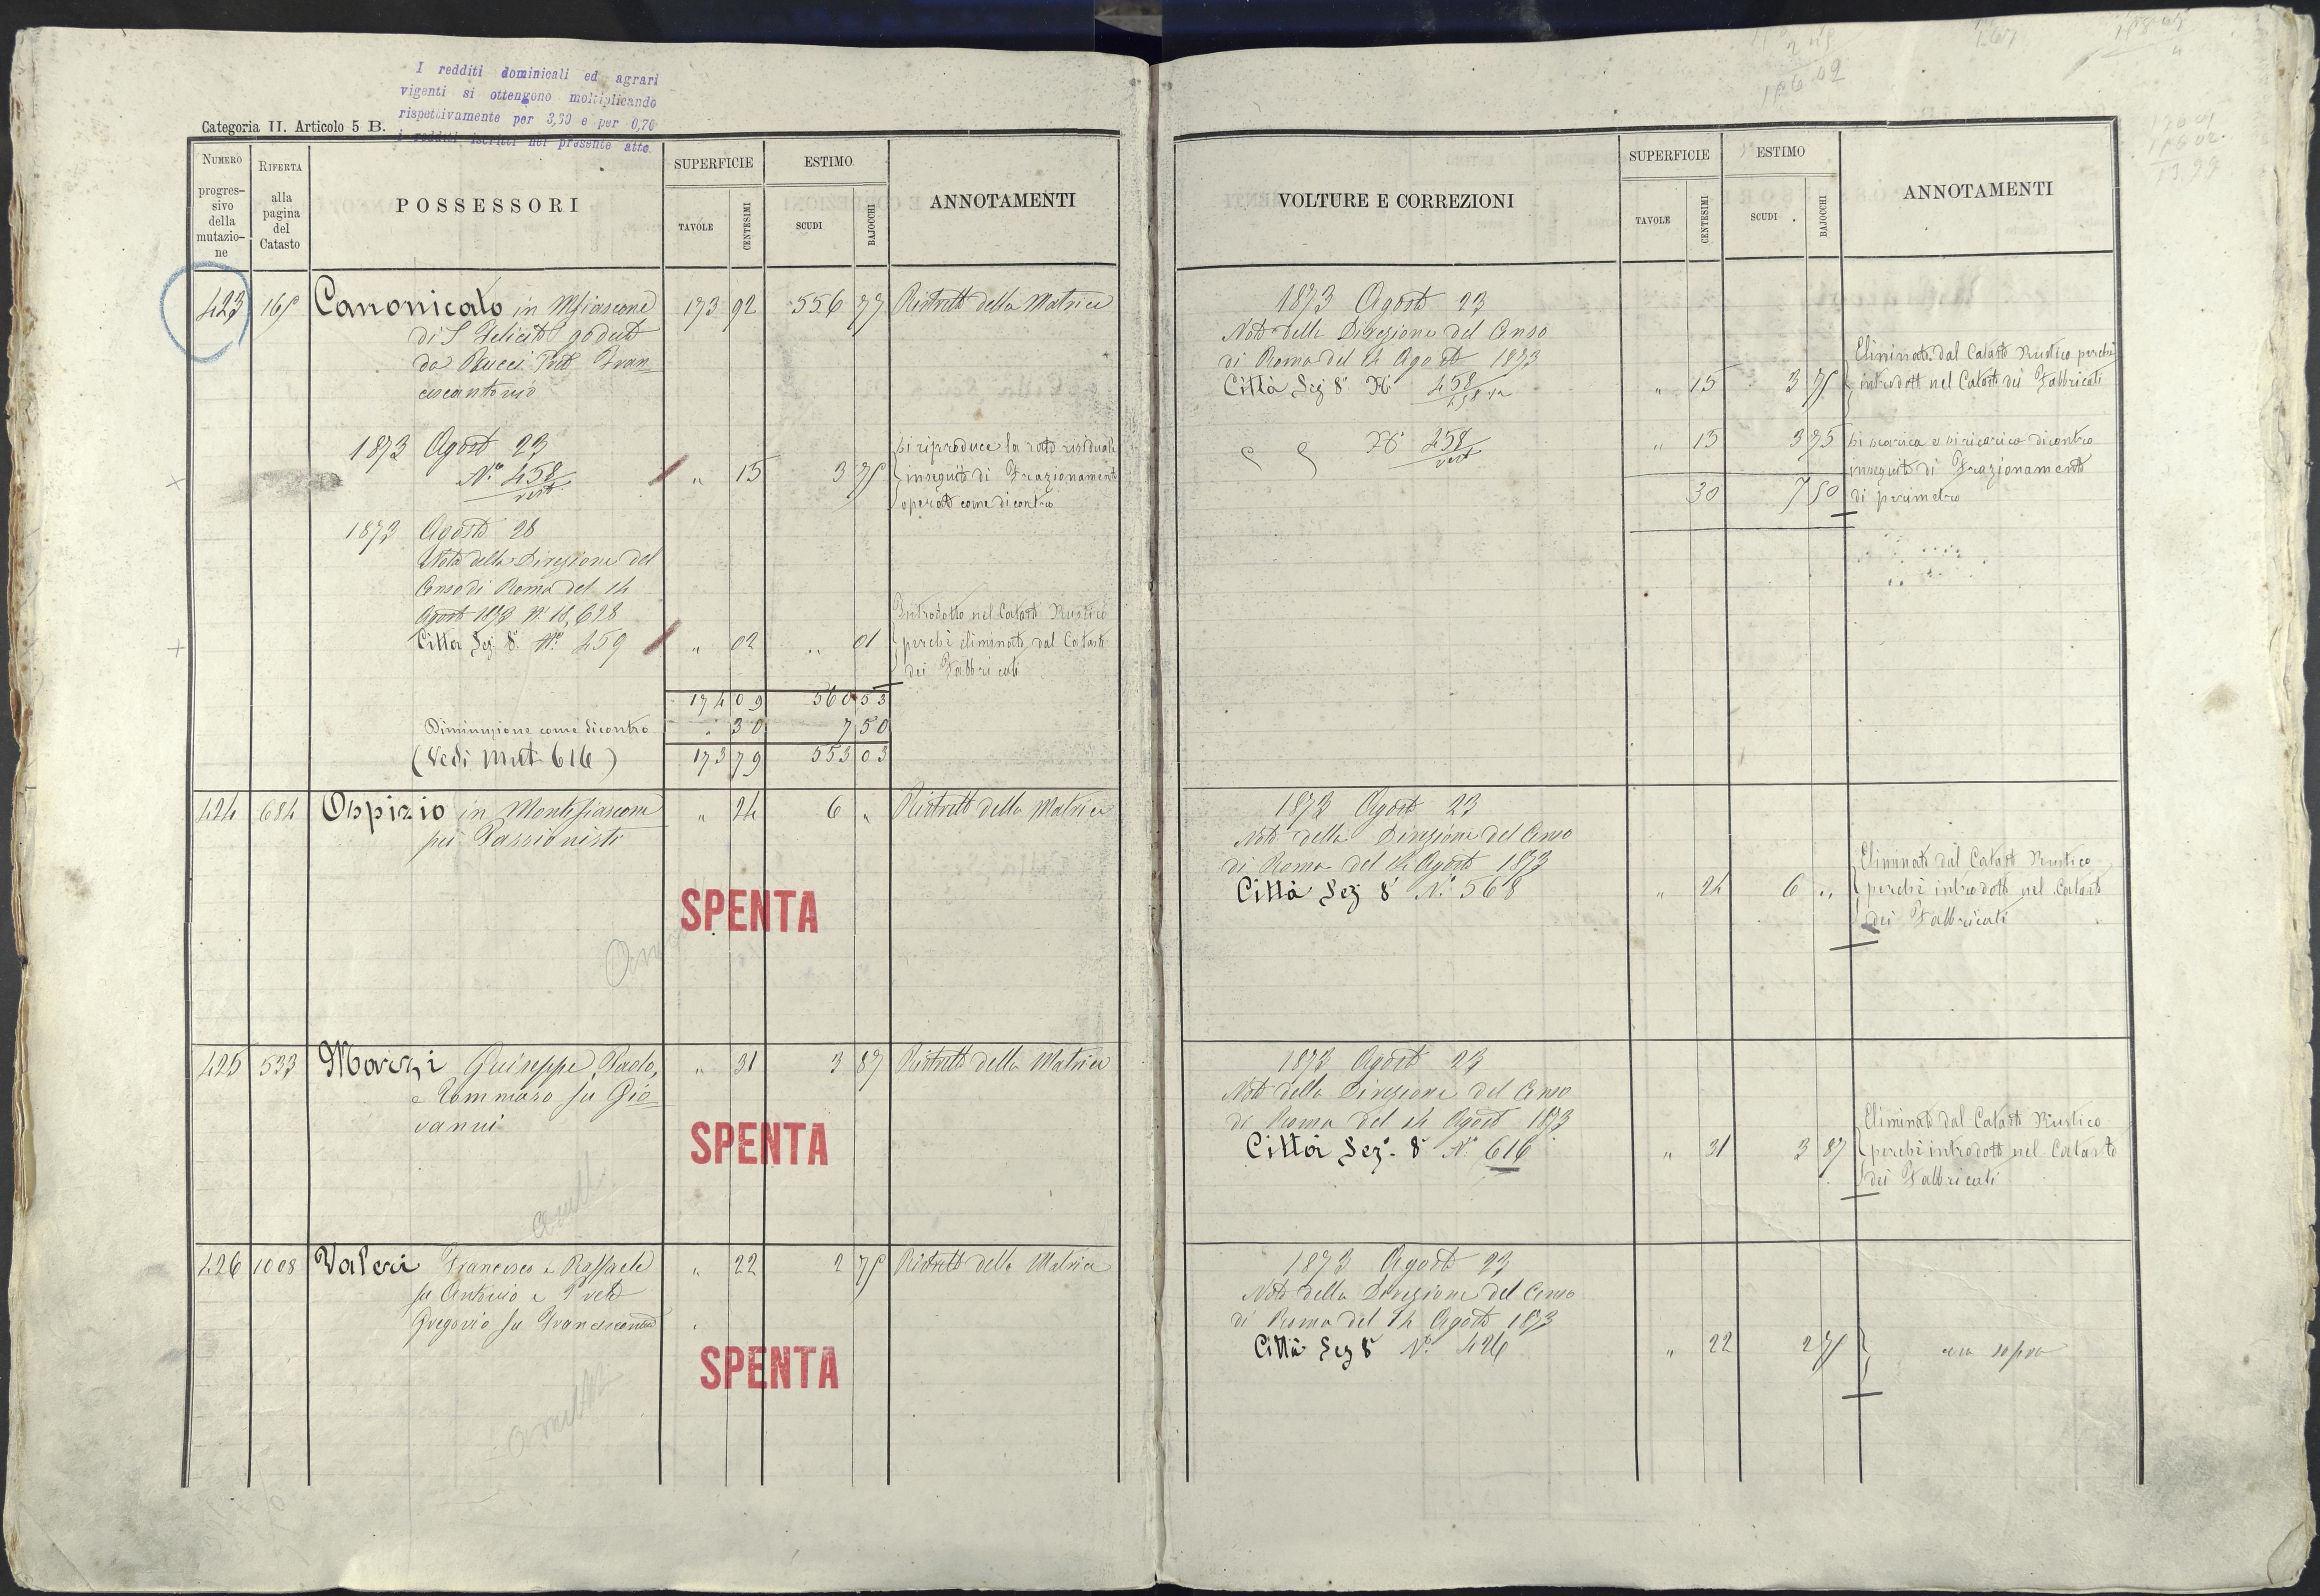 I redditi dominicali ed agrari
vigenti si ottengono moltiplicando
rispettivamente per 3,30 e per 0,70
i redditi iscritti nel presente atto.
Categoria II. Articolo 5 B.
NUMERO progressivo della mutazione
RIFERTA alla pagina del Catasto
POSSESSORI
SUPERFICIE
TAVOLE
CENTESIMI
ESTIMO
SCUDI
BAJOCCHI
ANNOTAMENTI
423 165 Canonicato in Mfiascone 173 92 556 77 Ristretto della Matrice
di S Felicita goduto
da Pucci Fran
cescantonio
1873 Agosto 23
N.o 458 vert " 15 3 75
si riproduce la rata residuale
in seguito di Frazionamento
operato come dicontro
1873 Agosto 28
Nota della Direzione del
Censo di Roma del 14
Agosto 1873 N. 18,628
Città Sez. 8a No 459 " 02 " 01
Introdotto nel Catasto Rustico
perchè eliminato dal Catasto
dei Fabbricati
174 09 560 53
Diminuzione come dicontro " 30 7 50
(Vedi Mut 616) 173 79 553 03
424 684 Ospizio in Montefiascone " 24 6 " Ristretto della Matrice
pei Passionisti
SPENTA
425 533 Marzi Giuseppe, Paolo, " 31 3 87 Ristretto della Matrice
e Tommaso fu Gio
vanni
SPENTA
426 1008 Valeri Francesco e Raffaele " 22 2 75 Ristretto della Matrice
fu Antonio e
Gregorio fu Francescantonio
SPENTA
VOLTURE E CORREZIONI
SUPERFICIE
TAVOLE
CENTESIMI
ESTIMO
SCUDI
BAJOCCHI
ANNOTAMENTI
1873 Agosto 23
Nota della Direzione del Censo
di Roma del 14 Agosto 1873
Città Sez 8a No 458 " 15 3 75
Eliminato dal Catasto Rustico perchè
introdotto nel Catasto dei Fabbricati
No 458 vert " 15 3 75
si scarica e si ricarica dicontro
in seguito di Frazionamento
di perimetro
30 7 50
1873 Agosto 23
Nota della Direzione del Censo
di Roma del 14 Agosto 1873
Città Sez 8a No 568 " 24 6 "
Eliminato dal Catasto Rustico
perchè introdotto nel Catasto
dei Fabbricati
1873 Agosto 23
Nota della Direzione del Censo
di Roma del 14 Agosto 1873
Città Sez. 8a No 616 " 31 3 87
Eliminato dal Catasto Rustico
perchè introdotto nel Catasto
dei Fabbricati
1873 Agosto 23
Nota della Direzione del Censo
di Roma del 14 Agosto 1873
Città Sez 8a No 426 " 22 2 75
come sopra